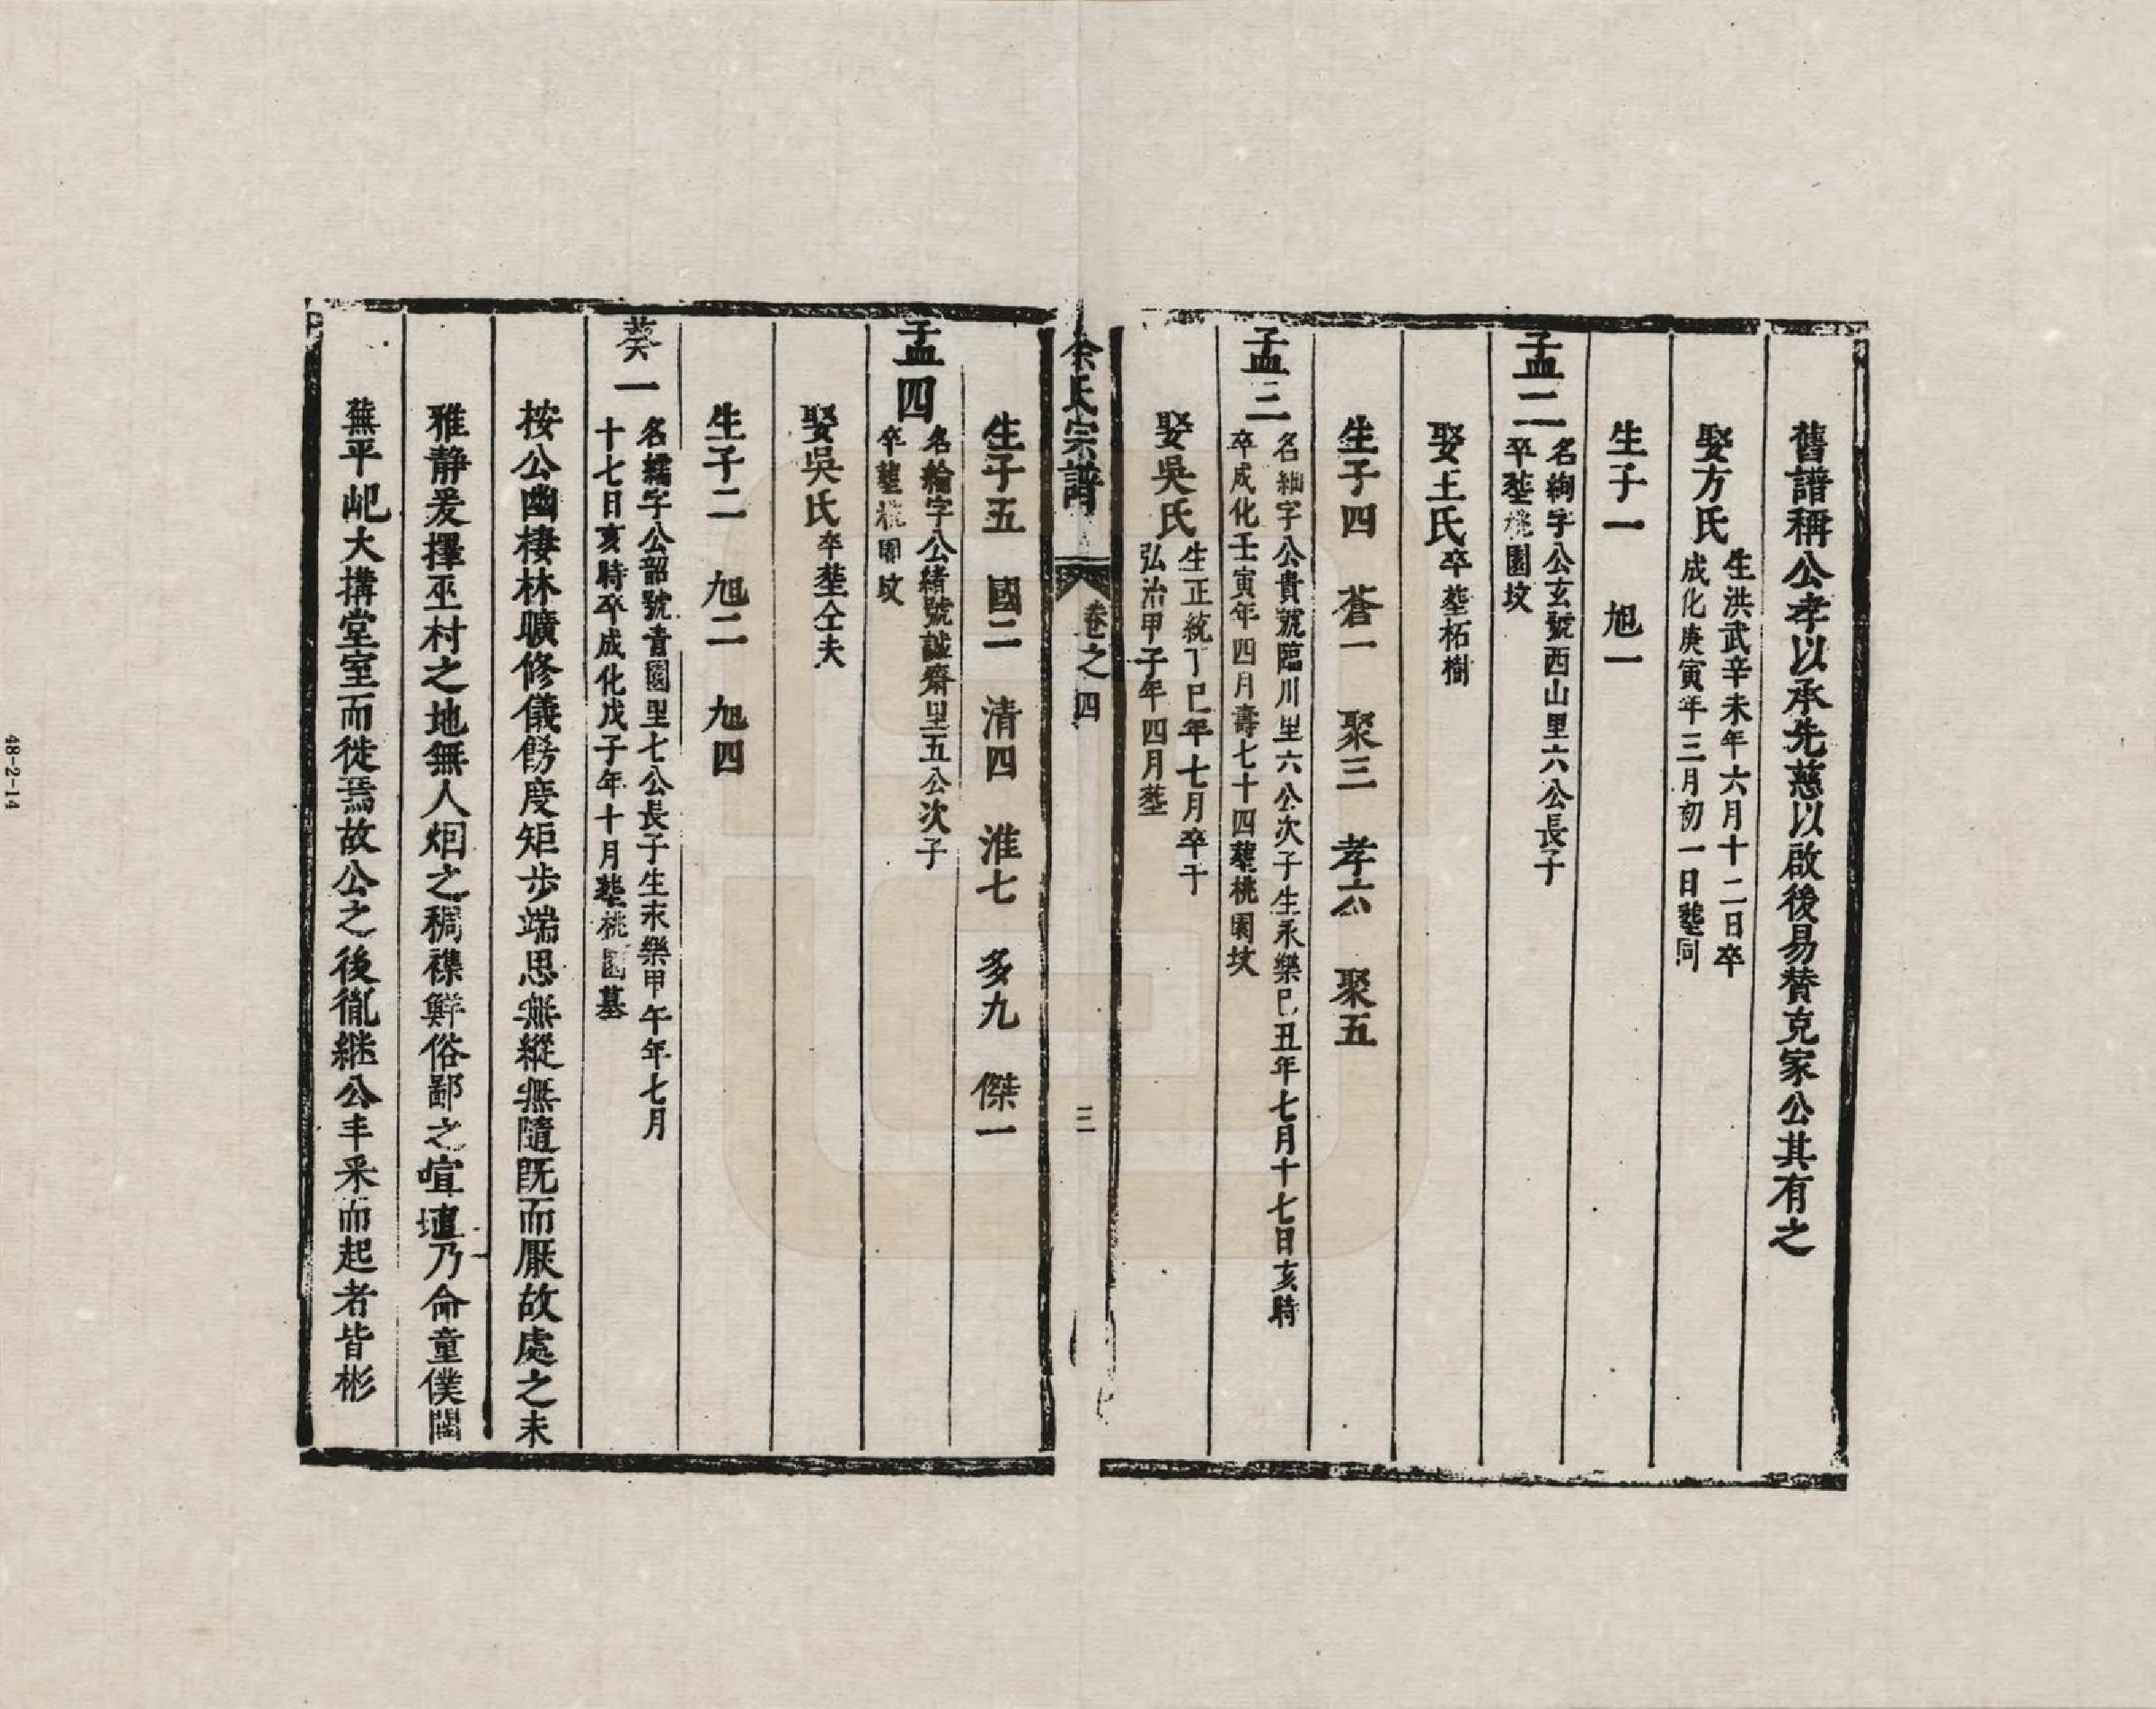 舊譜稱公孝以承先慈以啟後易替克家公其有之
娶方氏
生洪武辛未年六月十二日卒
成化庚寅年三月初一日塟同
生子一　旭一
孟二
名絢字公玄號西山里六公長子
卒塟桃園坟
娶王氏
卒塟柘樹
生子四　蒼一　聚三　孝六　聚五
孟三
名紬字公貴號臨川里六公次子生永樂巳丑年七月十七日亥時
卒成化壬寅年四月壽七十四塟桃園坟
娶吳氏
生正統丁巳年七月卒于
弘治甲子年四月塟
余氏宗譜
卷之四
三
生子五　國二　清四　淮七　多九　傑一
孟四
名綸字公緒號誠齋里五公次子
卒塟桃園坟
娶吳氏
卒塟仝夫
生子二　旭二　旭四
葵一
名繻字公韶號青園里七公長子生永樂甲午年七月
十七日亥時卒成化戊子年十月塟桃園墓
按公幽棲林曠修儀飭度矩步端思無縱無隨既而厭故處之未
雅静爰擇巫村之地無人烟之稠襍鮮俗鄙之喧壇乃命童僕闢
蕪平屺大搆堂室而徙焉故公之後胤継公丰采而起者皆彬
48-2-14